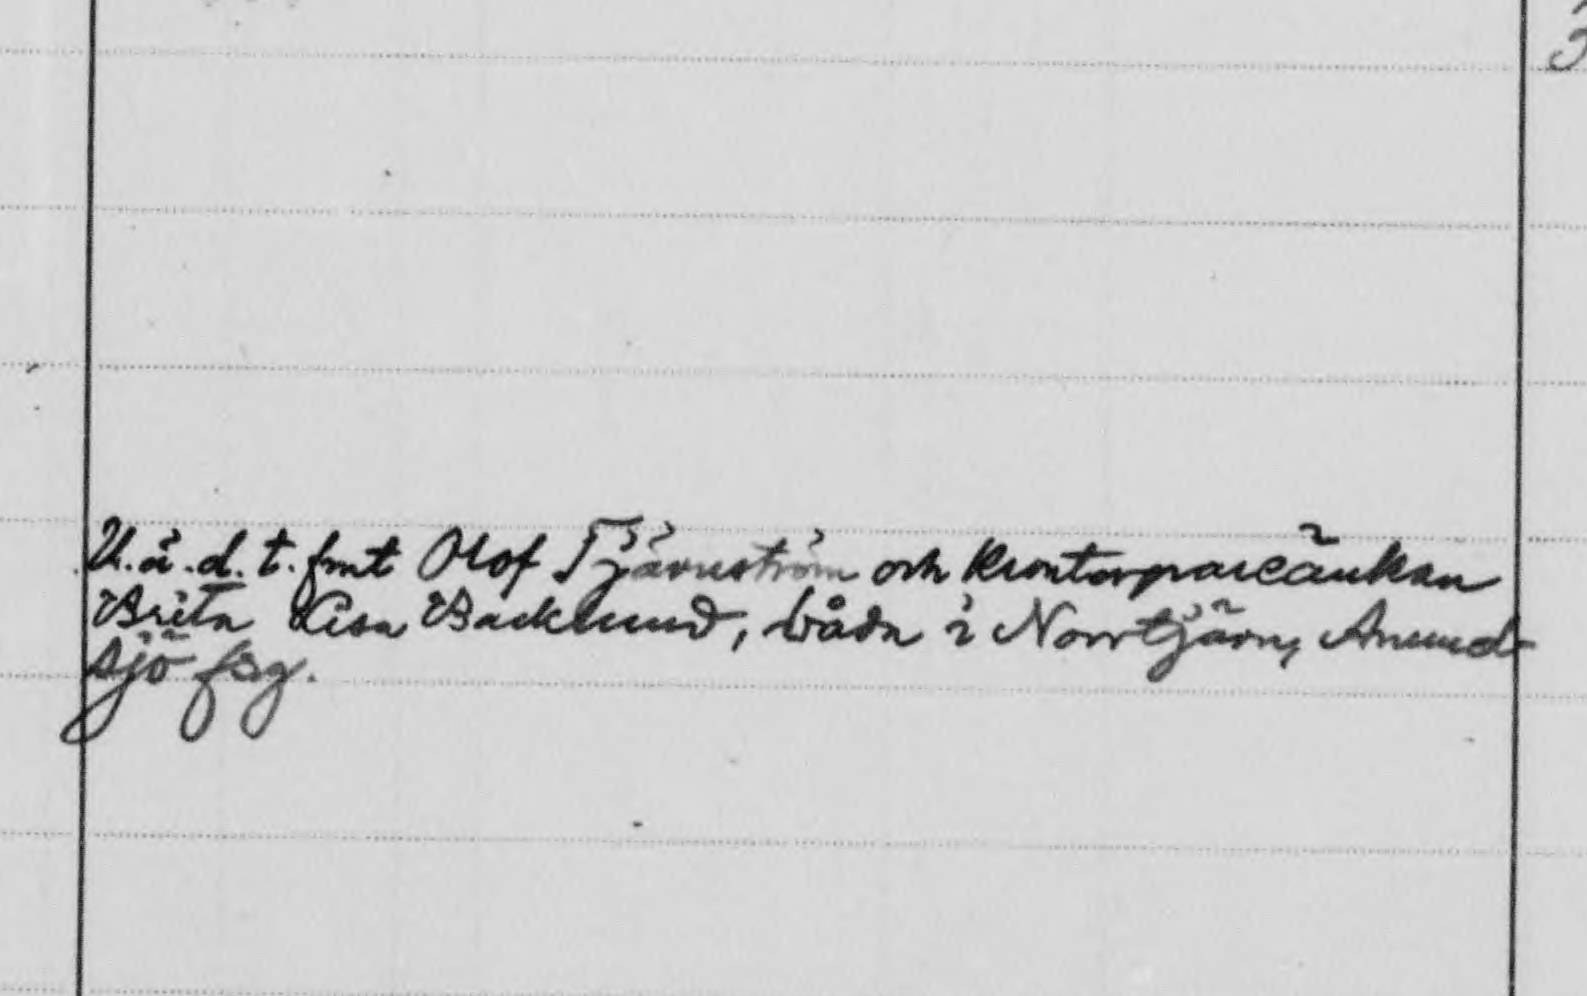 3
U.ä.d.t. fmt Olof Tjärnström och krontorpareänkan
Brita Lisa Backlund, båda i Norrtjärn, Anund-
sjö fsg.